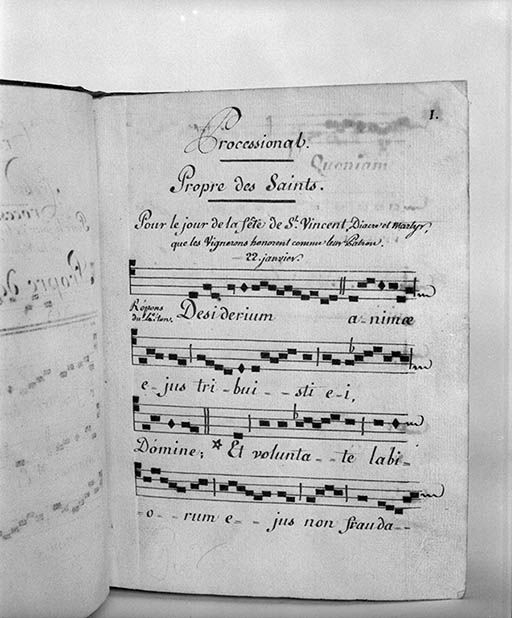 1.
Processional.
Propre des Saints.
Pour le jour de la fête de St. Vincent, Diacre et Martyr,
que les Vignerons honorent comme leur Patron.
22. janvier.
Répons
Desiderium a-nimæ
e-jus tri-bui--sti e-i,
Dómine; * Et volunta--te labi-
-o--rum e--jus non frauda--
Quoniam
Propre de